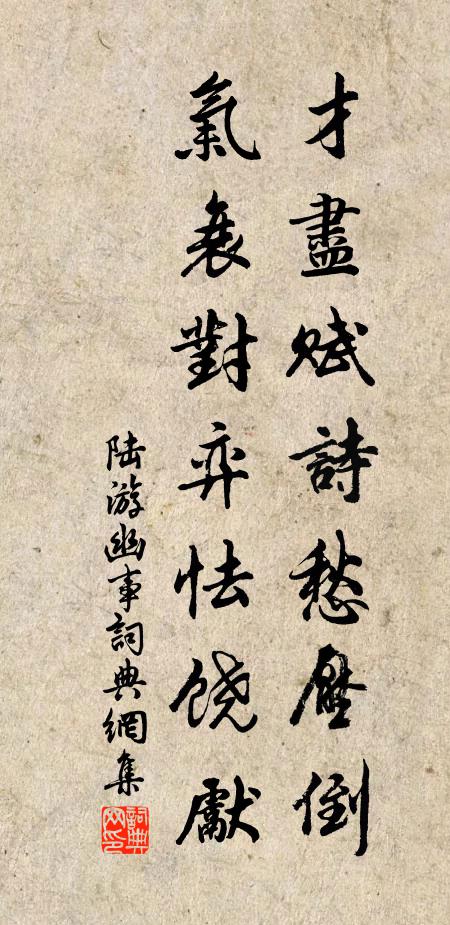 才盡賦詩愁壓倒
氣衰對弈怯饒獻
陸游幽事詞典網集
詞典網印